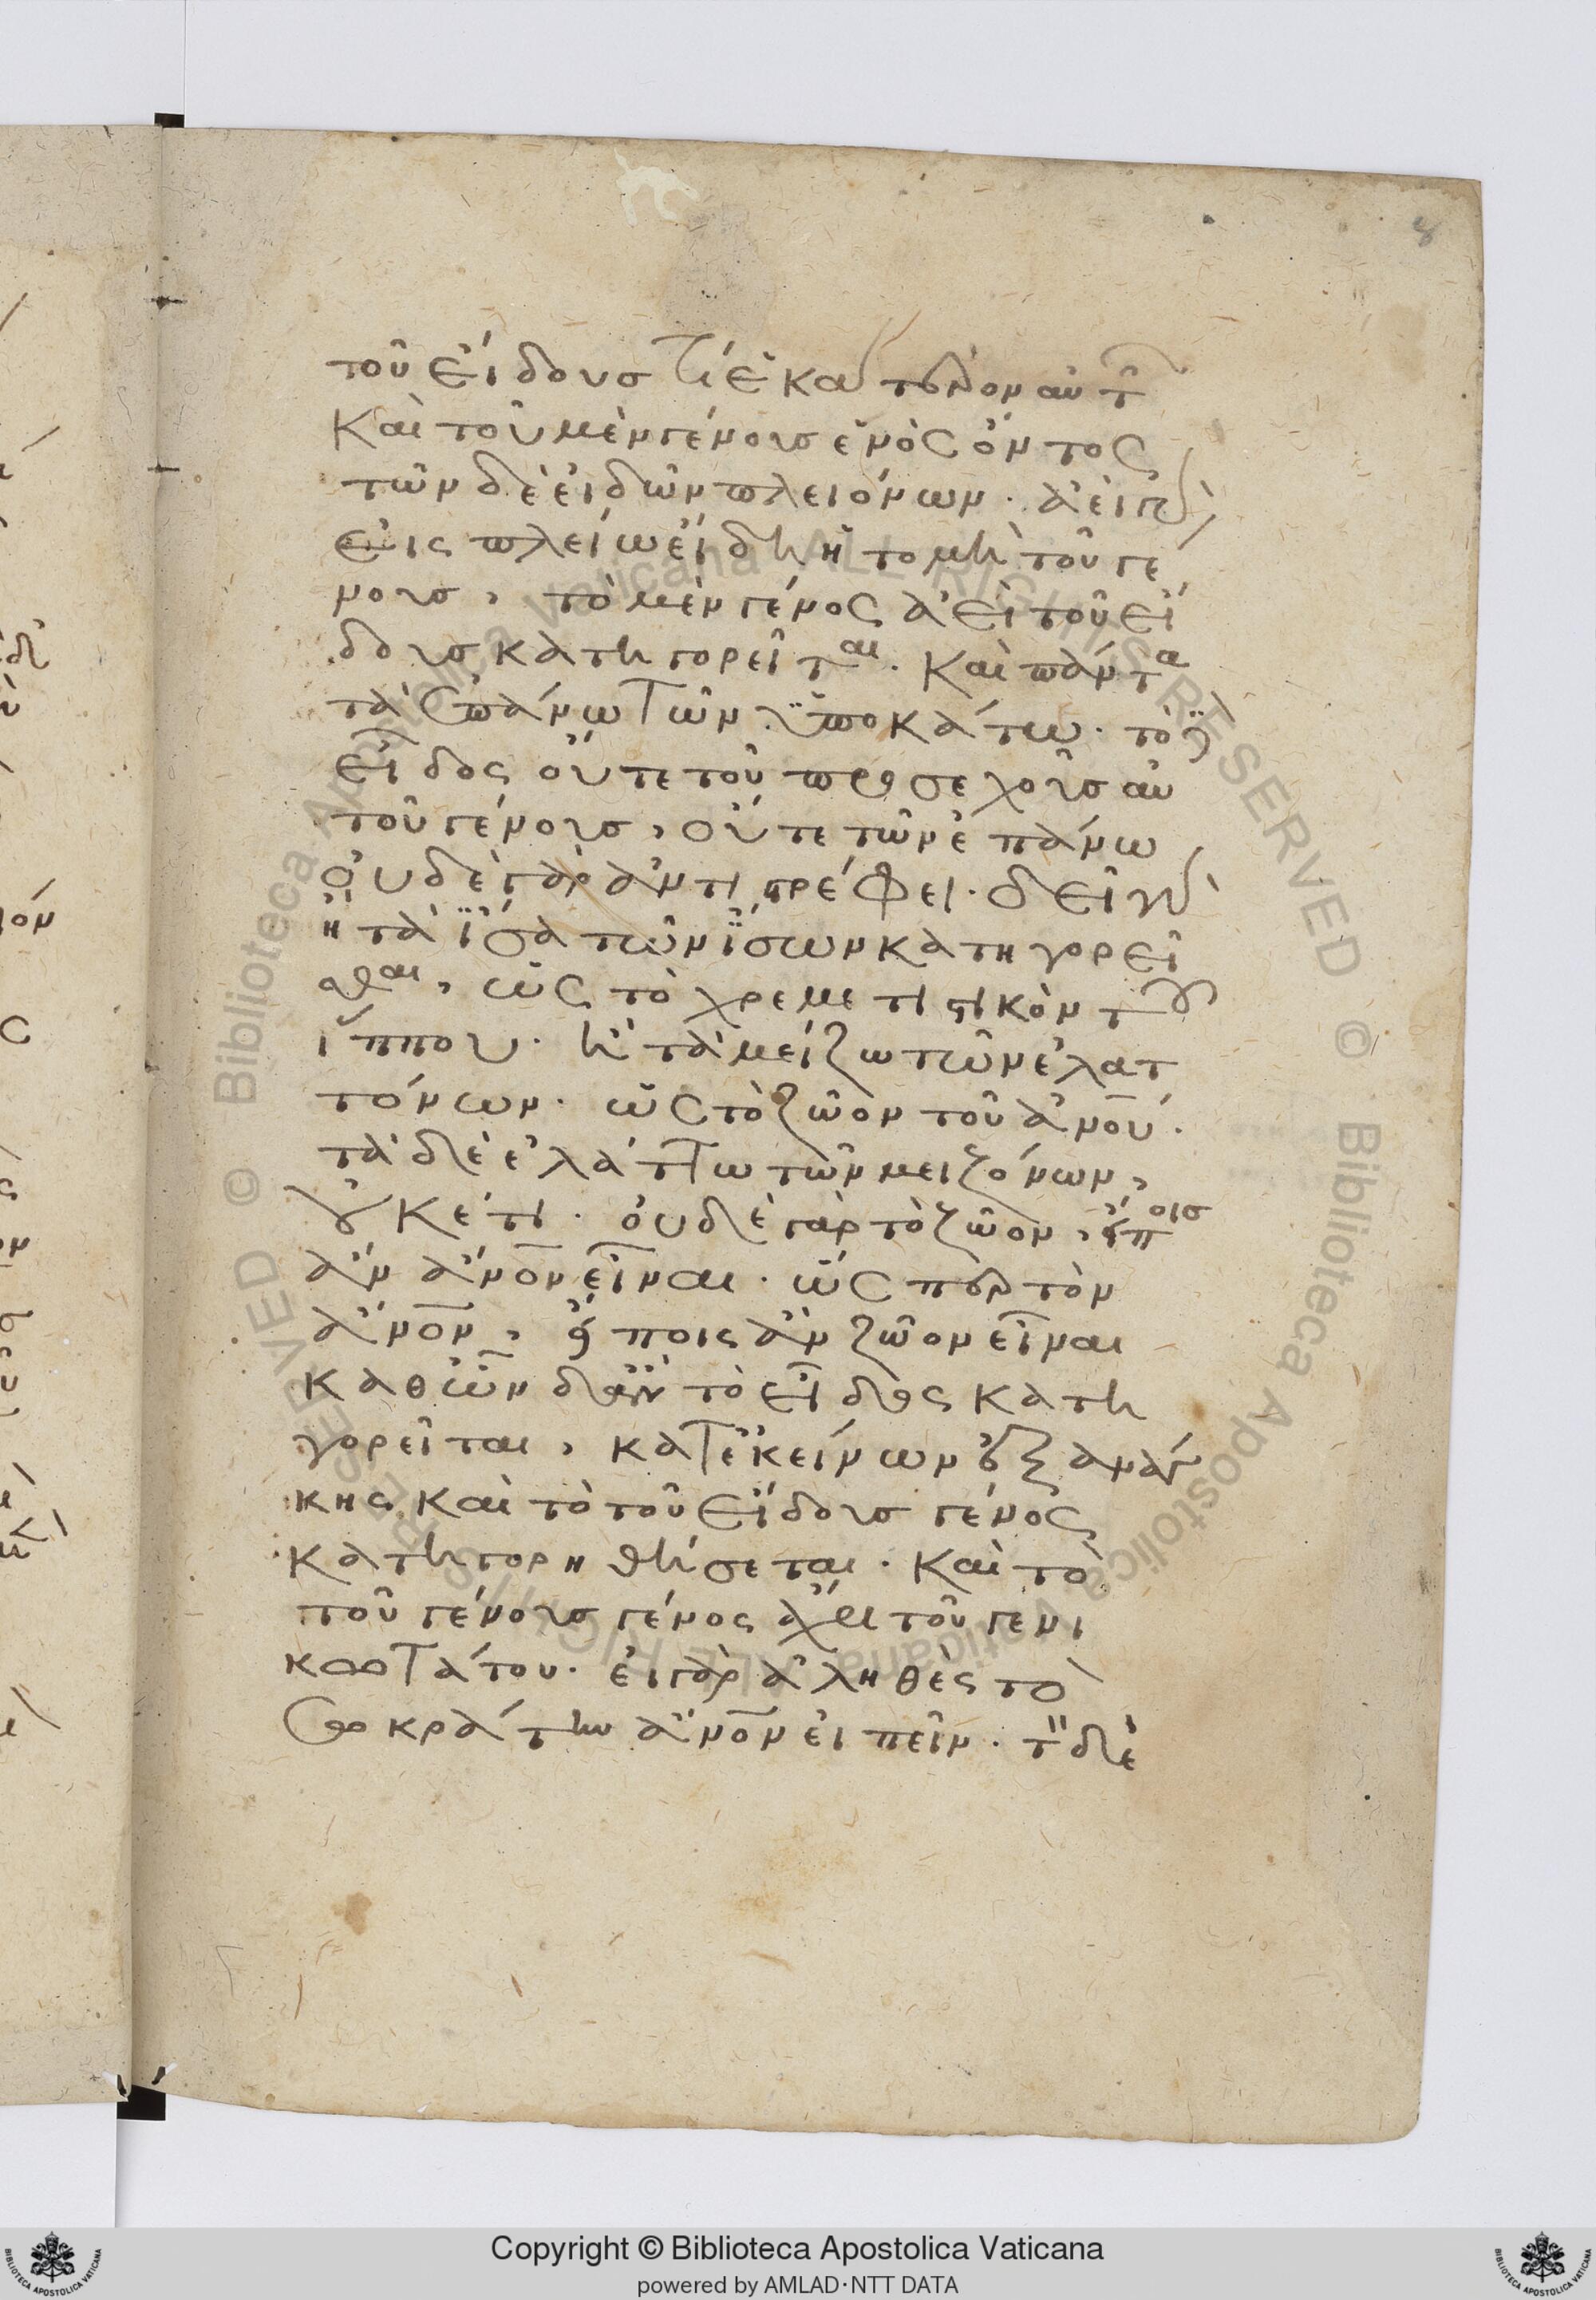 τοῦ εἴδους τί ἑκάτερον αὐτῶν
Καὶ τοῦ μὲν γένους ἑνὸς ὄντος
τῶν δὲ εἰδῶν πλειόνων. ἀεὶ γὰρ
εἰς πλείω εἴδη ἡ τομὴ τοῦ γέ
νους, τὸ μὲν γένος ἀεὶ τοῦ εἴ
δους κατηγορεῖται. Καὶ πάντα
τὰ ἐπάνω τῶν ὑποκάτω. τὸ δὲ
εἶδος οὔτε τοῦ προσεχοῦς αὐ
τοῦ γένους, οὔτε τῶν ἐπάνω
οὐδὲ γὰρ ἀντιστρέφει. δεῖ γὰρ
ἢ τὰ ἴσα τῶν ἴσων κατηγορεῖ
σθαι, ὡς τὸ χρεμετιστικὸν τοῦ
ἵππου. ἢ τὰ μείζω τῶν ἐλατ
τόνων. ὡς τὸ ζῶον τοῦ ἀνου.
τὰ δὲ ἐλάττω τῶν μειζόνων,
οὐκέτι. οὐδὲ γὰρ τὸ ζῶον, εἴποις
ἂν ἄνον εἶναι. ὥσπερ τὸν
ἄνον, εἴποις ἂν ζῶον εἶναι
καθ ὧν δ ἂν τὸ εἶδος κατη
γορεῖται, κατ ἐκείνων ἐξ ἀνάγ
κης καὶ τὸ τοῦ εἴδους γένος
κατηγορηθήσεται. Καὶ τὸ
τοῦ γένους γένος ἄχρι τοῦ γενι
κωτάτου. εἰ γὰρ ἀληθὲς τὸ
Σωκράτην ἄνον εἰπεῖν. τὸν δὲ
8
Copyright © Biblioteca Apostolica Vaticana
powered by AMLAD·NTT DATA